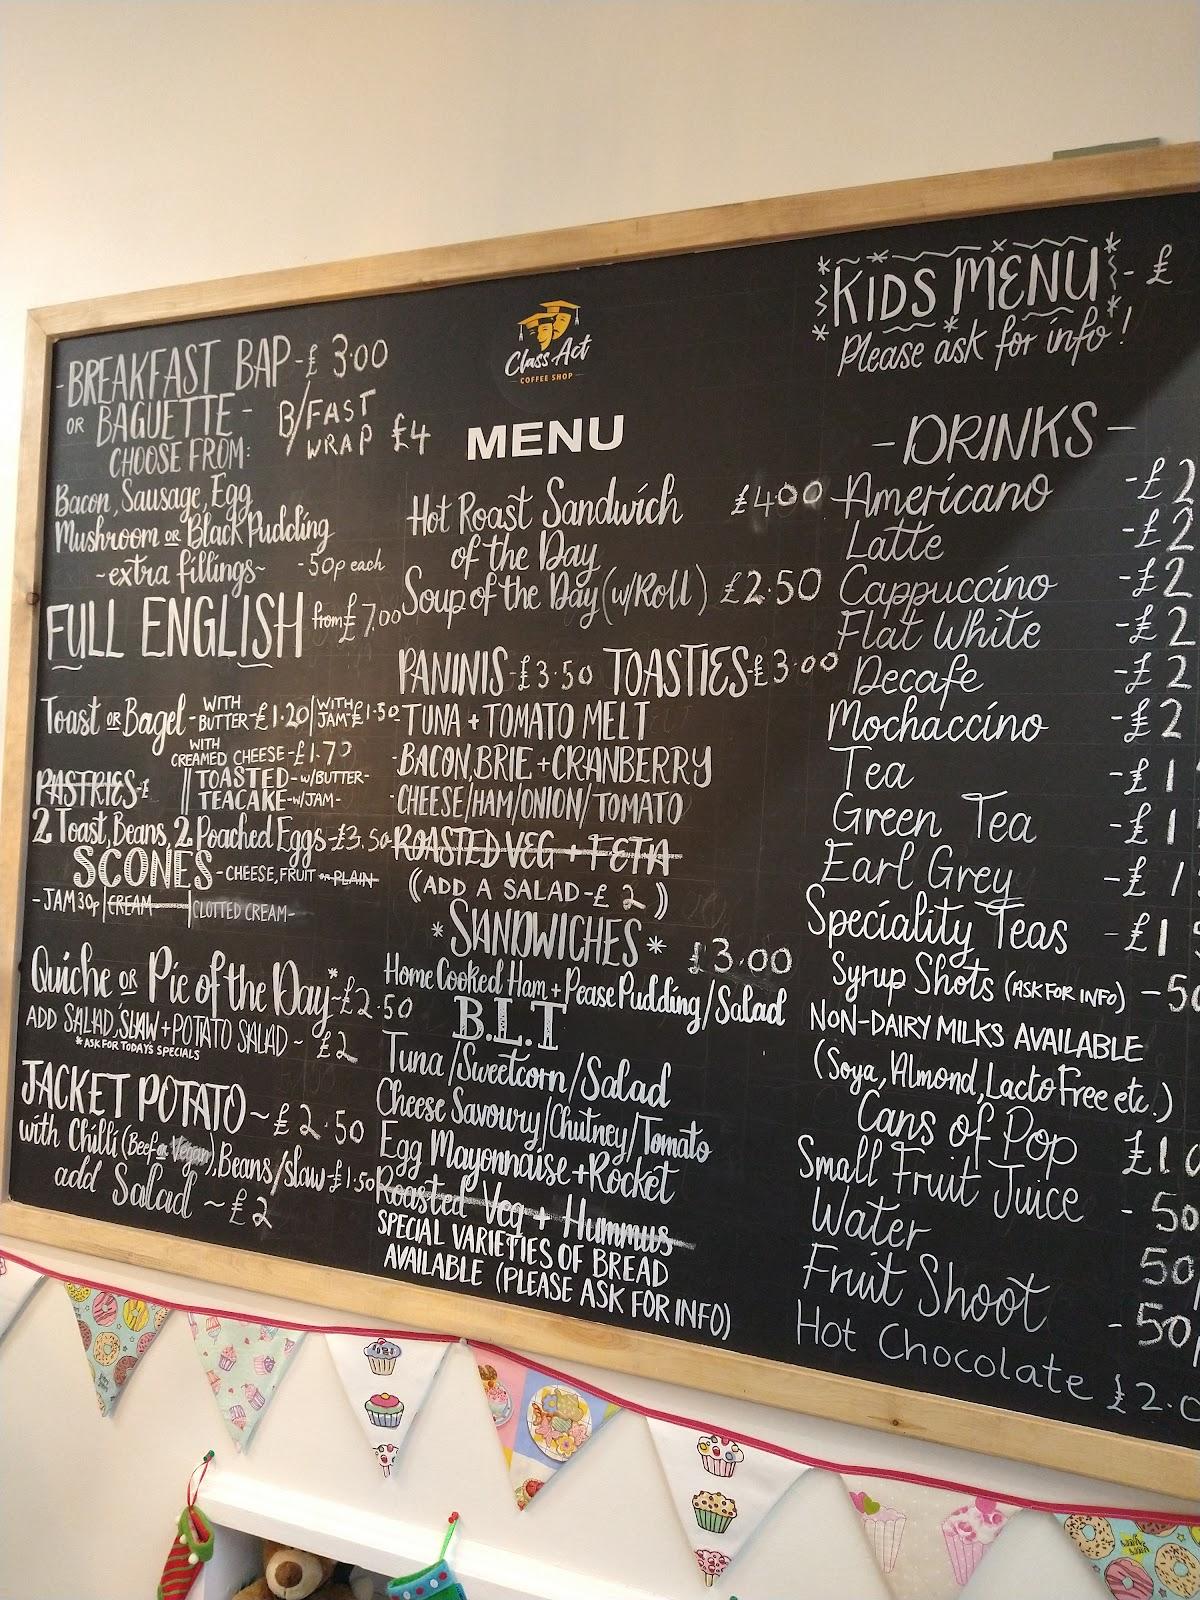 -BREAKFAST BAP-£ 3.00
OR BAGUETTE-
CHOOSE FROM:
B/FAST
WRAP £4
Bacon, Sausage, Egg
Mushroom or Black Pudding
~extra fillings~ -50p each
FULL ENGLISH from £7.00
Toast OR Bagel - WITH BUTTER-£1.20 | WITH JAM-£1.50
WITH CREAMED CHEESE-£1.70
PASTRIES-£
TOASTED - W/BUTTER-
TEACAKE - W/JAM-
2 Toast, Beans, 2 Poached Eggs-£3.50
SCONES - CHEESE, FRUIT OR PLAIN
- JAM 30p | CREAM | CLOTTED CREAM-
Quiche OR Pie of the Day*-£2.50
ADD SALAD, SLAW + POTATO SALAD ~ £2
*ASK FOR TODAY'S SPECIALS
JACKET POTATO ~ £2.50
with Chilli (Beef or Vegan), Beans/slaw-£1.50
add Salad ~ £2
Class Act
COFFEE SHOP
MENU
Hot Roast Sandwich £4.00
of the Day
Soup of the Day (w/Roll) £2.50
PANINIS-£3.50 TOASTIES-£3.00
-TUNA + TOMATO MELT
-BACON, BRIE + CRANBERRY
-CHEESE/HAM/ONION/TOMATO
-ROASTED VEG + FETA
(ADD A SALAD-£2)
*SANDWICHES* £3.00
Home Cooked Ham + Pease Pudding/Salad
B.L.T
Tuna/Sweetcorn/Salad
Cheese Savoury/Chutney/Tomato
Egg Mayonnaise + Rocket
Roasted Veg + Hummus
SPECIAL VARIETIES OF BREAD
AVAILABLE (PLEASE ASK FOR INFO)
KIDS MENU - £
Please ask for info!
-DRINKS-
Americano -£2
Latte -£2
Cappuccino -£2
Flat White -£2
Decafe -£2
Mochaccino -£2
Tea -£1
Green Tea -£1
Earl Grey -£1
Speciality Teas -£1
Syrup Shots (ASK FOR INFO) -50
NON-DAIRY MILKS AVAILABLE
(Soya, Almond, Lacto Free etc.)
Cans of Pop £1.0
Small Fruit Juice - 50
Water 50
Fruit Shoot - 50
Hot Chocolate £2.0